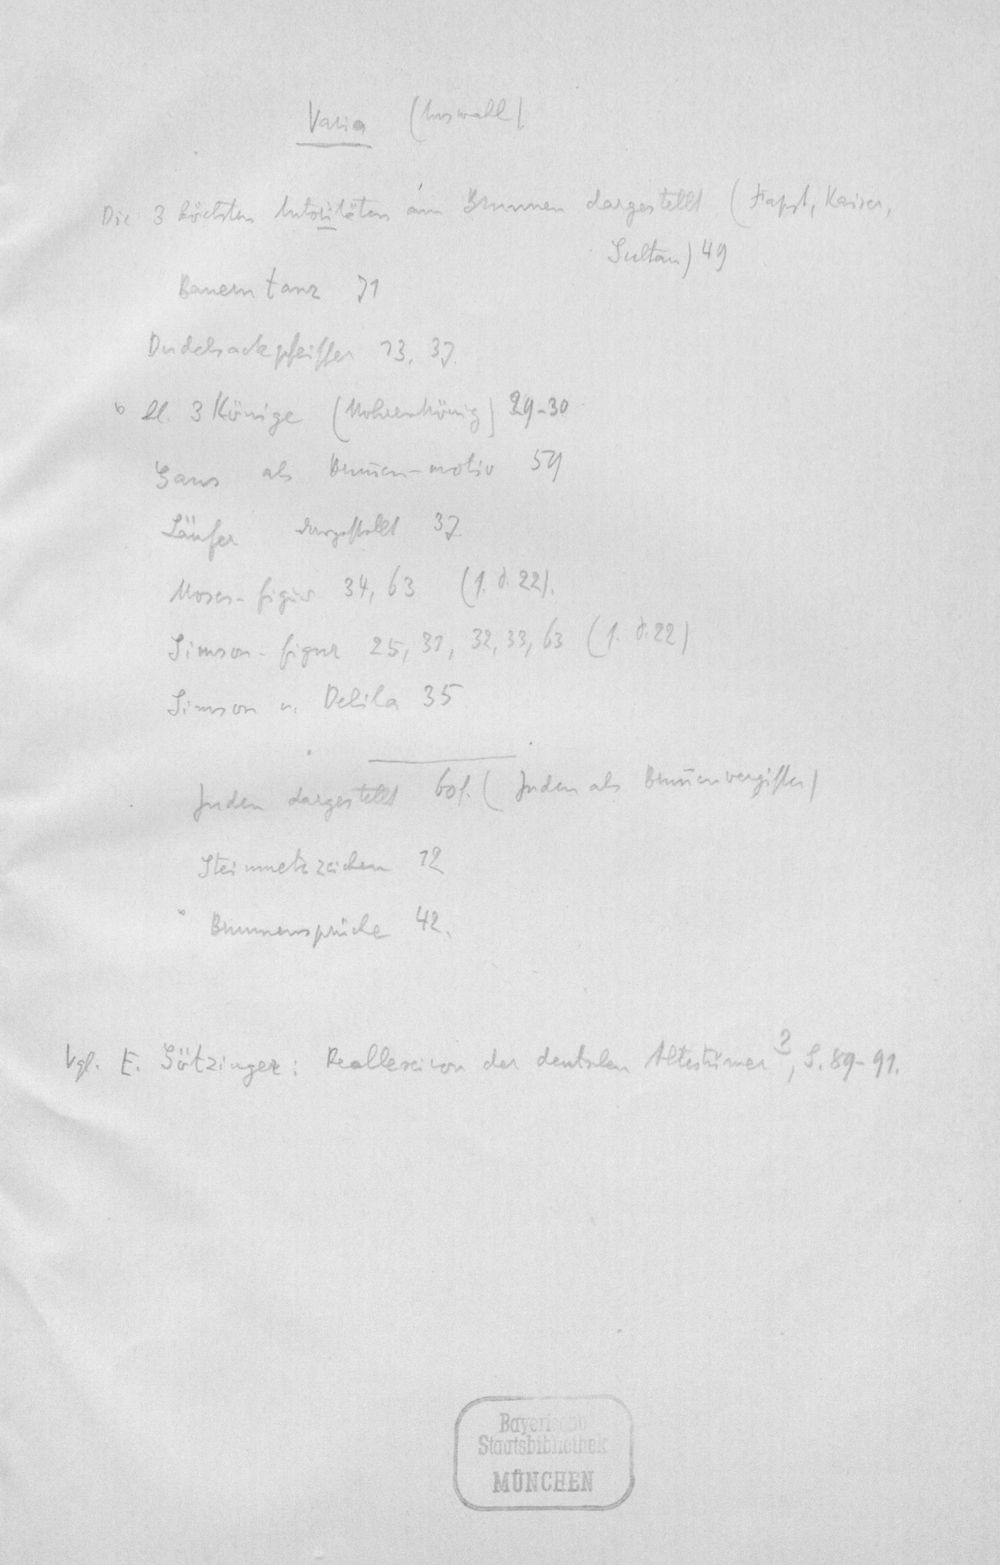 Varia (Auswahl)
Die 3 höchsten Autoritäten am Brunnen dargestellt (Papst, Kaiser,
Sultan) 49
Bauerntanz 71
Dudelsackpfeiffer 13, 37.
hl. 3 Könige (Mohrenkönig) 29-30
Gans als Brunnen-motiv 59
Läufer dargestellt 37
Moses-figur 34, 63 (1. d. 22).
Simson-figur 25, 31, 32, 33, 63 (1. d. 22)
Simson u. Delila 35
Juden dargestellt 60f. (Juden als Brunnenvergifter)
Steinmetzzeichen 12
Brunnensprüche 42.
Vgl. E. Götzinger: Reallexicon der deutschen Altertümer 2, S. 89-91.
Bayerische
Staatsbibliothek
MÜNCHEN